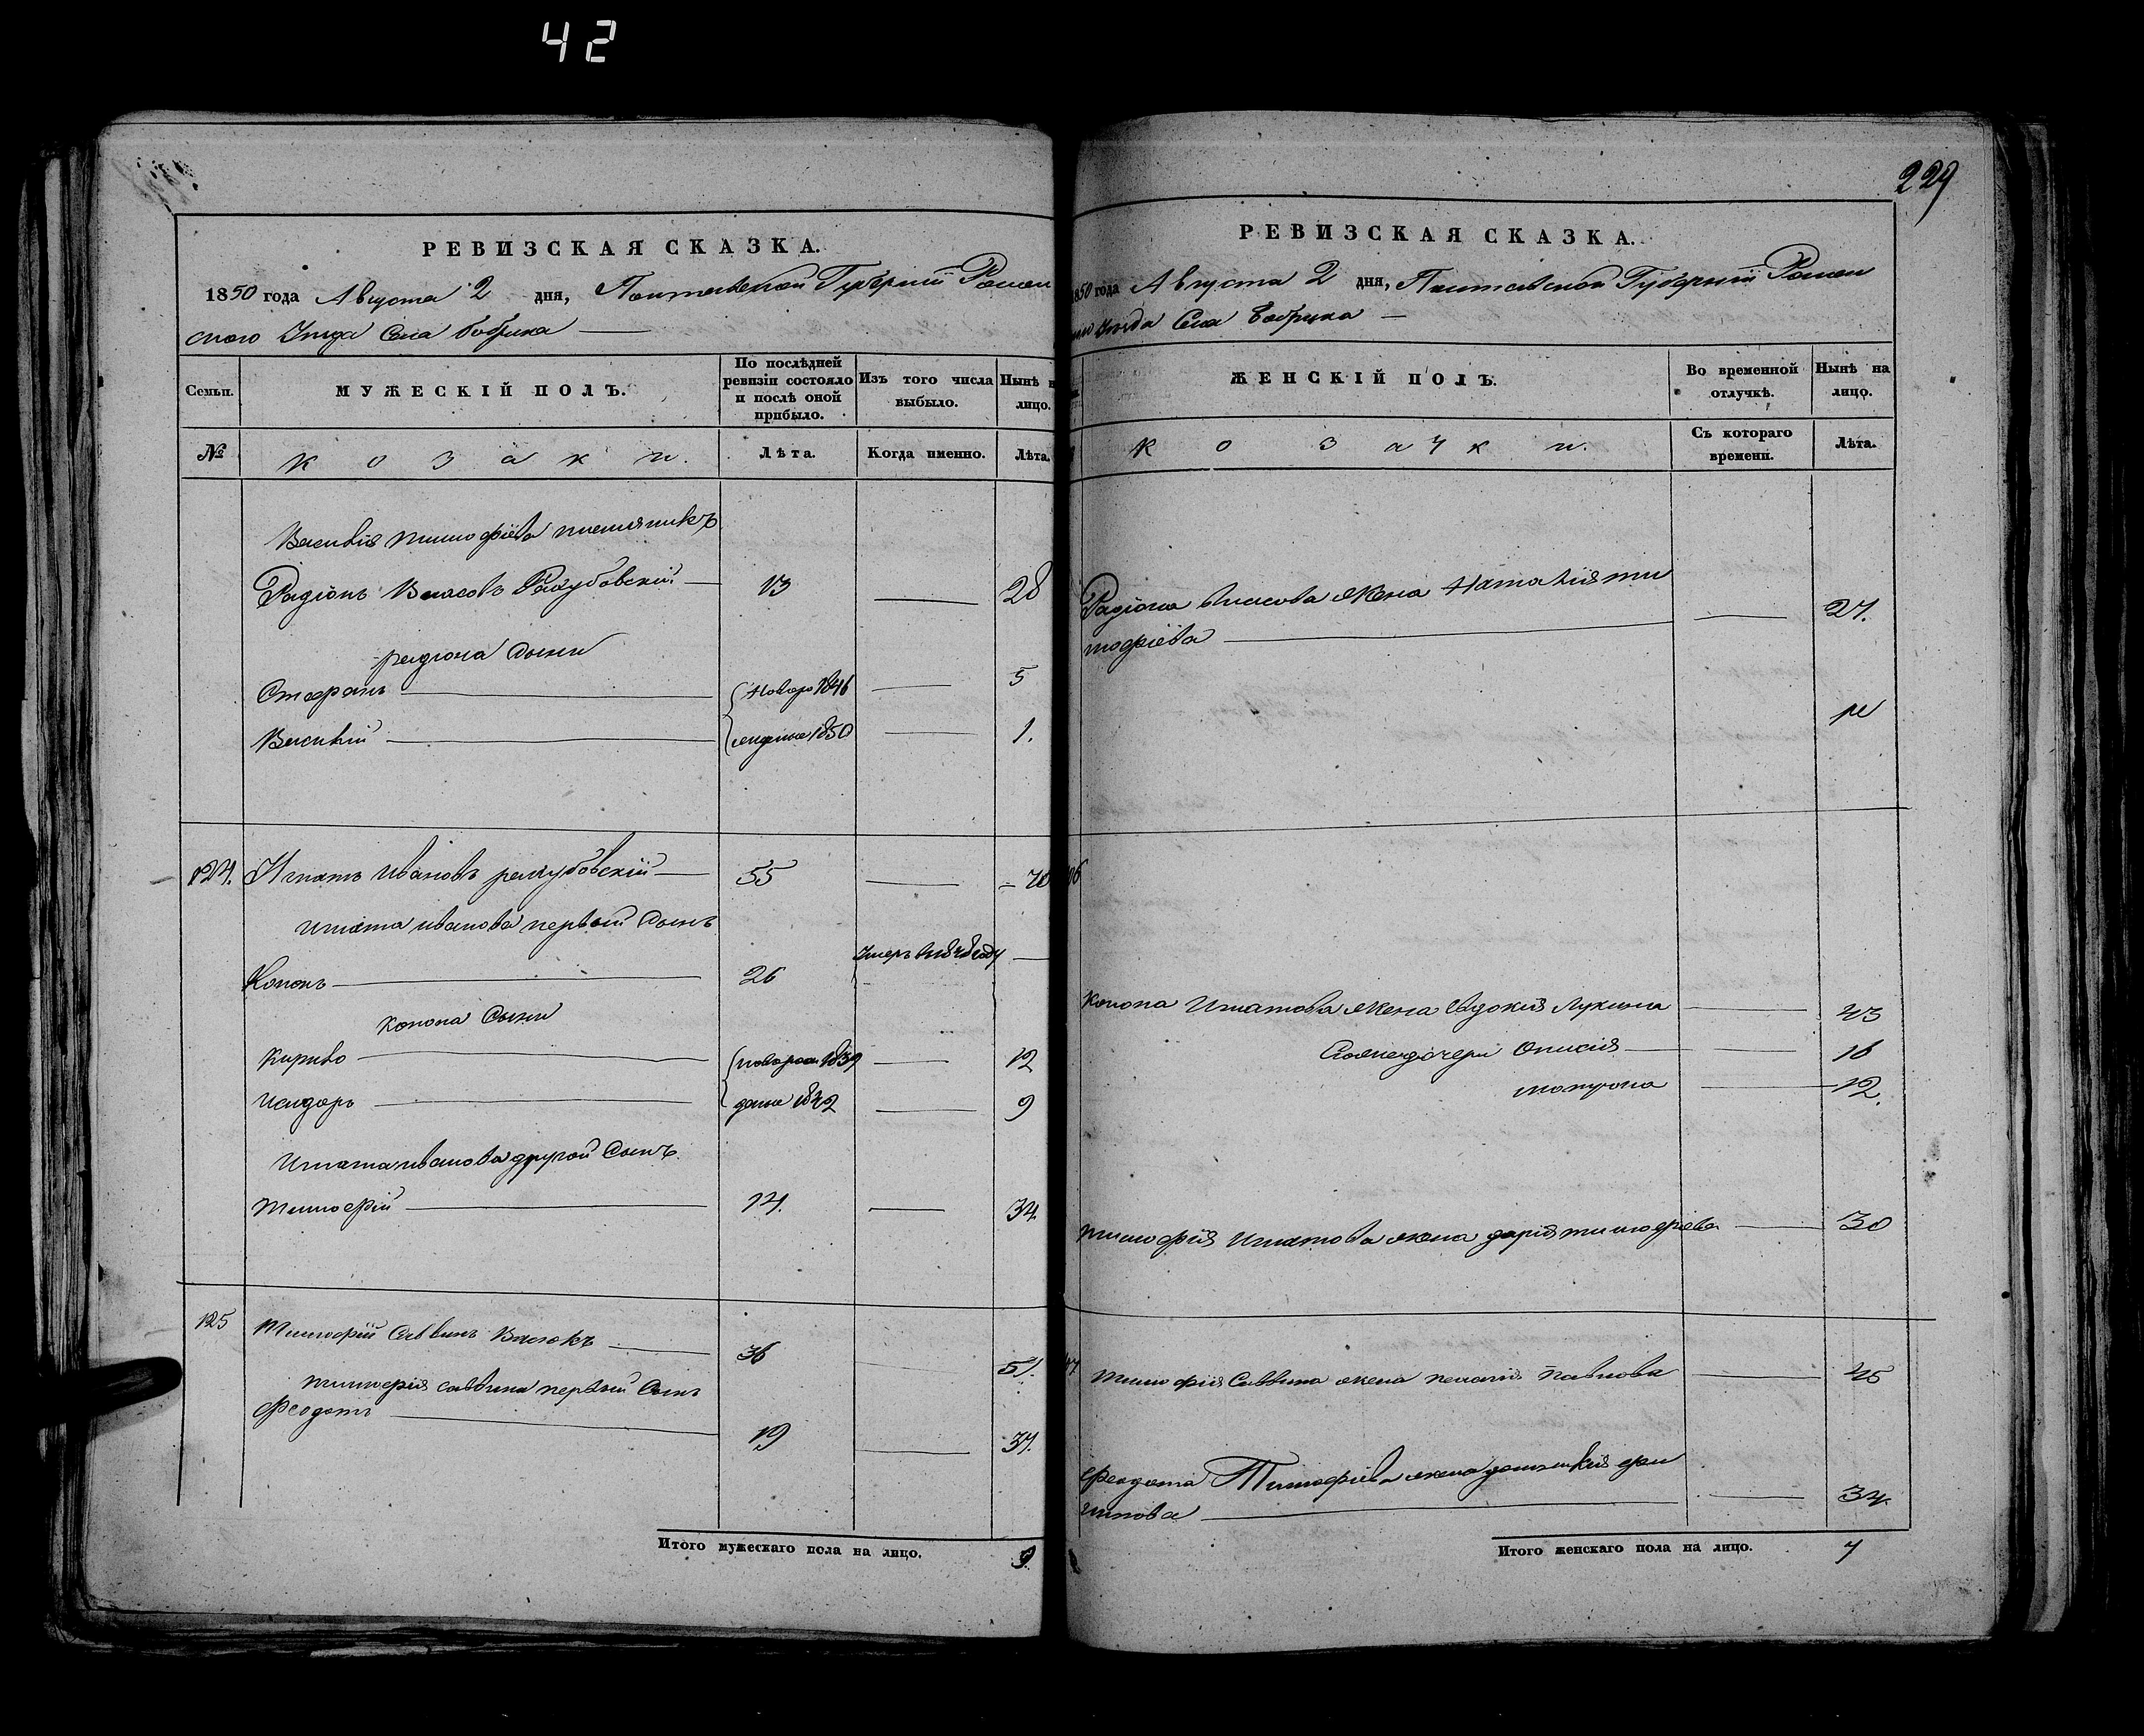 42
РЕВИЗСКАЯ СКАЗКА.
1850 года Августа 2 дня, Полтавской Губерніи Ромен
скаго Уезда Села Бобрика
Семьи.
МУЖЕСКІЙ ПОЛЪ.
По послѣдней
ревизіи состояло
и послѣ оной
прибыло.
Изъ того числа
выбыло.
Нынѣ н
лицо.
№
Козаки.
Лѣта.
Когда именно.
Лѣта.
Василія Тимофіева племяникъ
Радіонъ Власовъ 13 28
радіона Сыни
Стефанъ Новоро 1846 5
Василій 1850 1.
124. Игнатъ Ивановъ 55 70
Игната иванова первый Сынъ
Кононъ 26 Умеръ году
Конона Сыни
Кирило 1839 12
Исидоръ 1842 9
Игната иванова другой Сынъ
Тимофій 14. 34
125 Тимофій Саввинъ Власюкъ 36 51.
Тимофія саввина первый Сынъ
Феодотъ 19 34.
Итого мужескаго пола на лицо. 9.
229
РЕВИЗСКАЯ СКАЗКА.
1850 года Августа 2 дня, Полтавской Губерніи Ромен
Уезда Села Бобрика
ЖЕНСКІЙ ПОЛЪ.
Во временной
отлучкѣ.
Нынѣ на
лицо.
Козачки.
Съ котораго
времени.
Лѣта.
Радіона Власова жена Наталія ти
мофіева 27.
Конона Игнатова жена Евдокія Лукина 43
дочери Онисія 16
мотрона 12.
Тимофія Игнатова жена дарія тимофіева 30
Тимофія Саввина жена пелагія Павлова 45
Феодота Тимофіева жена домникія фи
липова 34.
Итого женскаго пола на лицо. 7